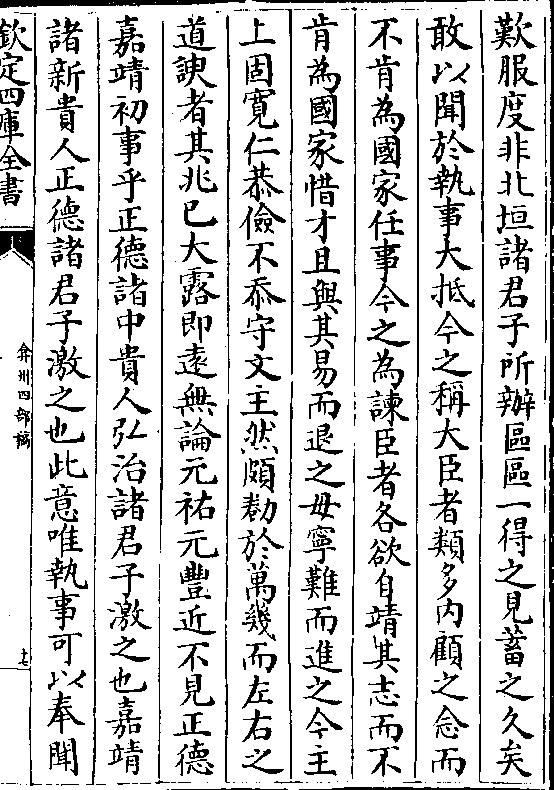 歎服度非北垣諸君子所辦區區一得之見蓄之久矣
敢以聞於執事大抵今之稱大臣者類多内顧之念而
不肯為國家任事今之為諫臣者各欲自靖其志而不
肯為國家惜才且與其易而退之毋寧難而進之今主
上固寛仁恭儉不忝守文主然頗勌於萬幾而左右之
道諛者其兆已大露即逺無論元祐元豐近不見正德
嘉靖初事乎正德諸中貴人弘治諸君子激之也嘉靖
諸新貴人正德諸君子激之也此意唯執事可以奉聞
欽定四庫全書
弇州四部稿